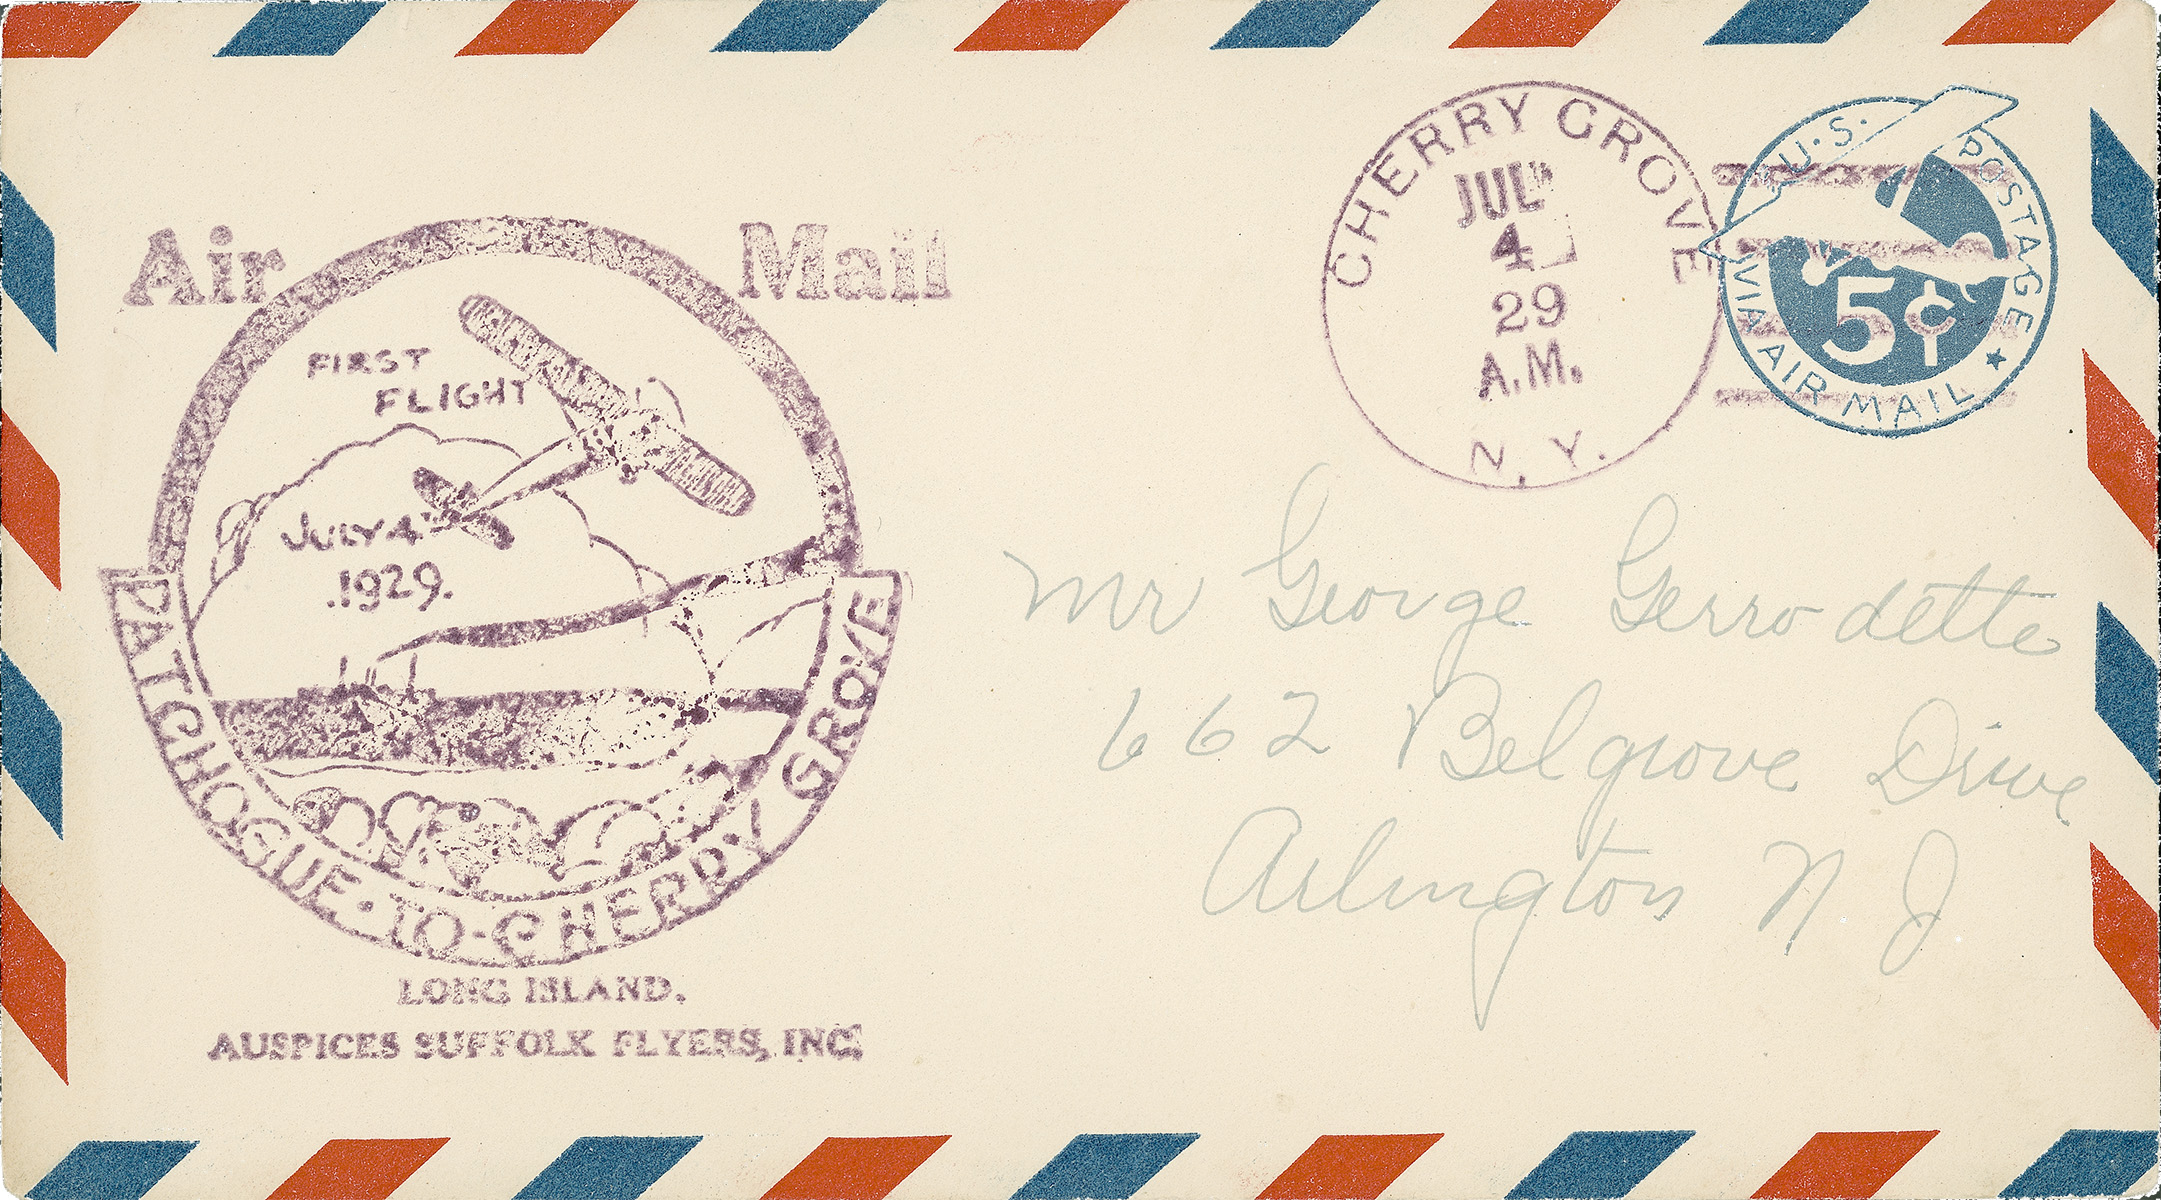 Air Mail
FIRST
FLIGHT
JULY 4
1929.
PATCHOGUE·TO-CHERRY GROVE
LONG ISLAND,
AUSPICES SUFFOLK FLYERS, INC.
CHERRY GROVE
JUL
4
29
A.M.
N.Y.
U.S. POSTAGE
5¢
VIA AIR MAIL
Mr George Gerrodette
662 Belgrove Drive
Arlington N J